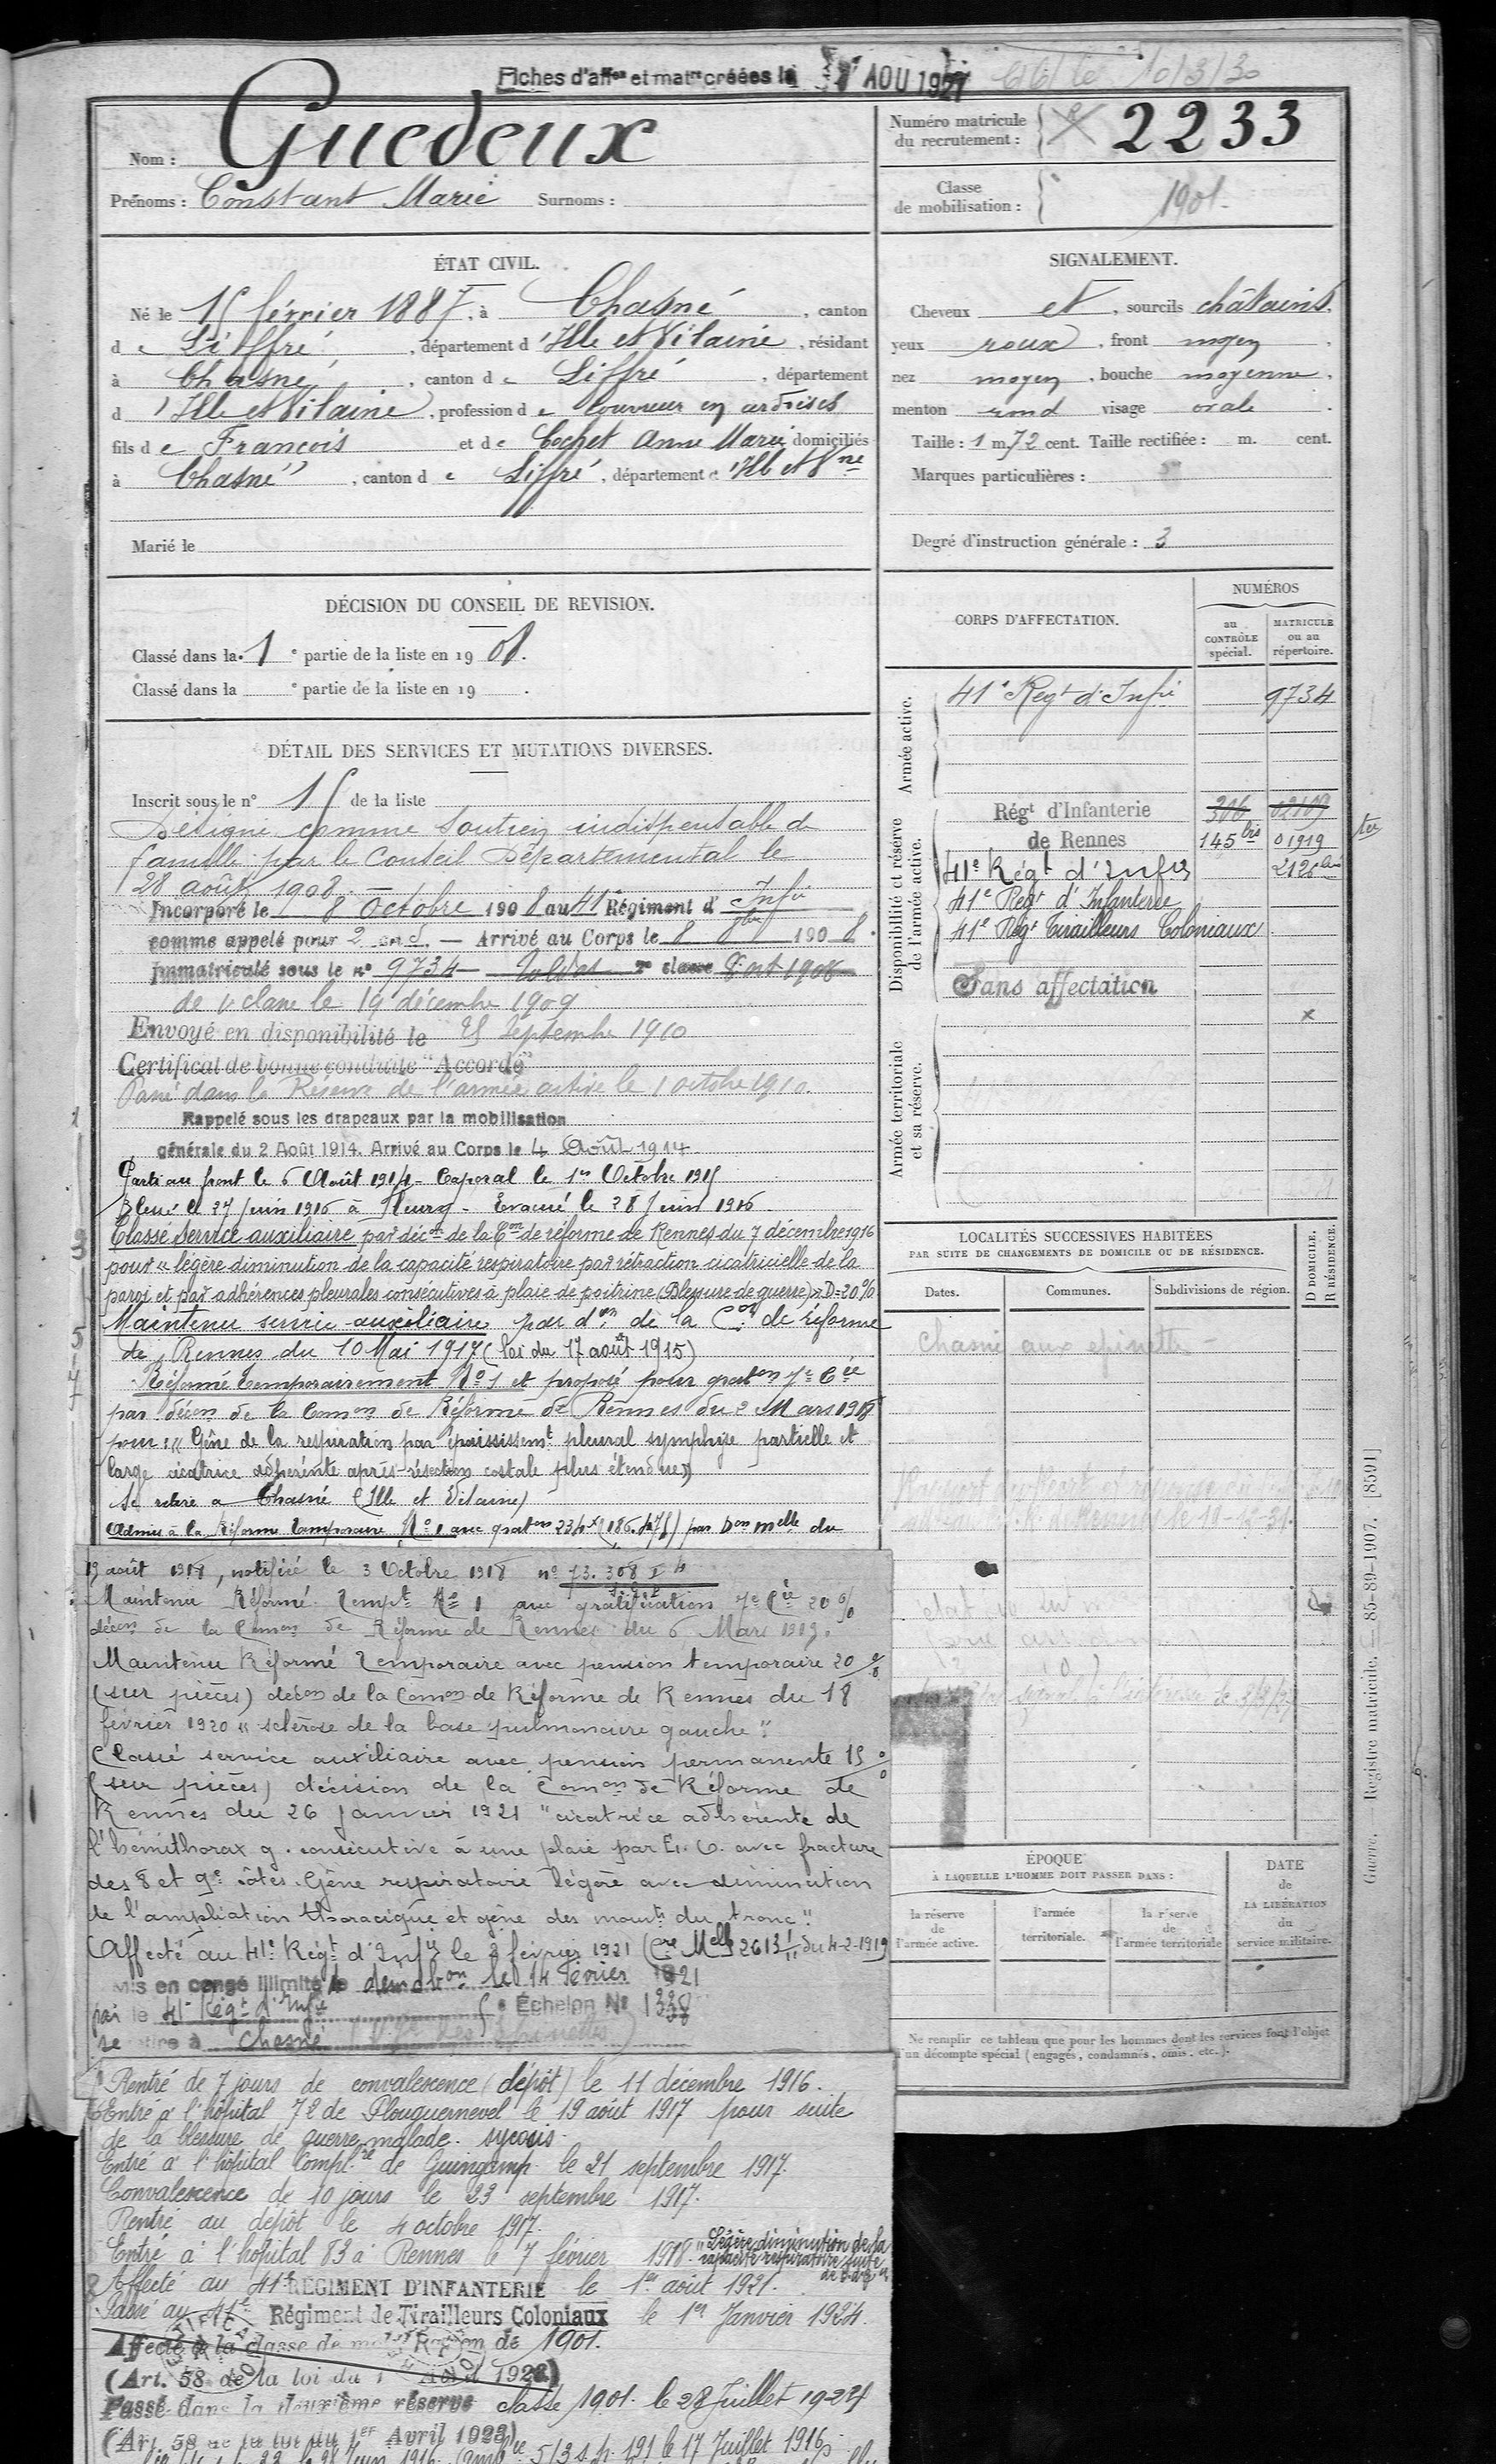 Fiches d'aff^on et mat^re créées le AOU 1927
Nom : Guedeux
Prénoms : Constant Marie Surnoms :
Numéro matricule du recrutement : 2233
Classe de mobilisation : 1901.
ÉTAT CIVIL.
Né le 15 février 1887, à Chasné, canton
de Liffré, département d'Ille et Vilaine, résidant
à Chasné, canton de Liffré, département
d'Ille et Vilaine, profession de Couvreur en ardoises
fils de François et de Cochet Anne Marie domiciliés
à Chasné, canton de Liffré, département d'Ille et V^ne
Marié le
SIGNALEMENT.
Cheveux et, sourcils châtains,
yeux roux, front moyen,
nez moyen, bouche moyenne,
menton rond visage ovale.
Taille : 1 m. 72 cent. Taille rectifiée : m. cent.
Marques particulières :
Degré d'instruction générale : 3
DÉCISION DU CONSEIL DE REVISION.
Classé dans la 1^e partie de la liste en 1908.
Classé dans la ^e partie de la liste en 19 .
DÉTAIL DES SERVICES ET MUTATIONS DIVERSES.
Inscrit sous le n° 15 de la liste
Désigné comme soutien indispensable de
famille par le Conseil Départemental le
28 août 1908. —
Incorporé le 8 Octobre 1908 au 41^e Régiment d'Inf^ie
comme appelé pour 2 ans. — Arrivé au Corps le 8 8^bre 1908.
Immatriculé sous le n° 9734 — Soldat 2^e classe 8 oct 1908
de 1^e classe le 19 décembre 1909
Envoyé en disponibilité le 25 septembre 1910
Certificat de bonne conduite "Accordé"
Passé dans la Réserve de l'armée active le 1 octobre 1910.
Rappelé sous les drapeaux par la mobilisation
générale du 2 Août 1914. Arrivé au Corps le 4 Août 1914.
Parti au front le 6 Août 1914 - Caporal le 1^er Octobre 1915
Blessé le 27 Juin 1916 à Fleury - Evacué le 28 Juin 1916.
Classé Service auxiliaire par déc^on de la C^on de réforme de Rennes du 7 décembre 1916
pour "légère diminution de la capacité respiratoire par rétraction cicatricielle de la
paroi et par adhérences pleurales consécutives à plaie de poitrine (Blessure de guerre)" D=20%
Maintenu service auxiliaire par d^on de la C^on de réforme
de Rennes du 10 Mai 1917 (loi du 17 août 1915)
Réformé temporairement N° 1 et proposé pour grat^on 7^e C^ie
par déc^on de la Com^on de Réforme de Rennes du 2 Mars 1918
pour : "Gêne de la respiration par épaississem^t pleural symphyse partielle et
large cicatrice adhérente après résection costale plus étendue"
Se retire à Chasné (Ille et Vilaine)
Admis à la Réforme temporaire N° 1 avec grat^on par D^on m^elle du
19 août 1918, notifié le 3 Octobre 1918 n° 73.308
Maintenu Réformé Temp^t N° 1 avec gratification 7^e C^ie 20%
déc^on de la Com^on de Réforme de Rennes du 6 Mars 1919.
Maintenu Réformé Temporaire avec pension temporaire 20%
(sur pièces) déc^on de la Com^on de Réforme de Rennes du 18
février 1920 "sclérose de la base pulmonaire gauche"
Classé service auxiliaire avec pension permanente 15%
(sur pièces) décision de la Com^on de Réforme de
Rennes du 26 janvier 1921 "cicatrice adhérente de
l'hémithorax g. consécutive à une plaie par E. O. avec fracture
des 8 et 9^e côtes. Gêne respiratoire légère avec diminution
de l'ampliation thoracique et gêne des mouv^ts du tronc"
Affecté au 41^e Rég^t d'Inf^ie le 2 février 1921 (C^re M^elle 2613 I/11 du 4-2-1919
Mis en congé illimité de démob^on le 14 février 1921
par le 41^e Rég^t d'Inf^ie Échelon N°
se retire à Chasné
Rentré de 7 jours de convalescence (dépôt) le 11 décembre 1916.
Entré à l'hôpital 72 de Plouguernevel le 19 août 1917 pour suite
de la blessure de guerre malade. sycosis.
Entré à l'hôpital Compl^re de Guingamp le 21 septembre 1917.
Convalescence de 10 jours le 23 septembre 1917.
Rentré au dépôt le 4 octobre 1917.
Entré à l'hôpital 83 à Rennes le 7 février 1918. "Légère diminution de la
capacité respiratoire suite
Affecté au 41^e RÉGIMENT D'INFANTERIE le 1^er août 1921.
Passé au 41^e Régiment de Tirailleurs Coloniaux le 1^er Janvier 1924.
Affecté à la classe de mobilisation de 1901.
(Art. 58 de la loi du 1^er Avril 1923)
Passé dans la deuxième réserve classe 1901. le 28 Juillet 1927
(Art. 58 de la loi du 1^er Avril 1923)
CORPS D'AFFECTATION.
NUMÉROS
au CONTRÔLE spécial.
MATRICULE ou au répertoire.
Armée active.
41^e Reg^t d'Inf^ie 9734
Disponibilité et réserve de l'armée active.
Rég^t d'Infanterie 316 02109
de Rennes 145 bis 01919 ter
41^e Rég^t d'Inf^ie 2126
41^e Reg^t d'Infanterie
41^e Rég^t Tirailleurs Coloniaux
Sans affectation
Armée territoriale et sa réserve.
LOCALITÉS SUCCESSIVES HABITÉES
PAR SUITE DE CHANGEMENTS DE DOMICILE OU DE RÉSIDENCE.
Dates. Communes. Subdivisions de région. D DOMICILE. R RÉSIDENCE.
Chasné aux epinettes
ÉPOQUE
À LAQUELLE L'HOMME DOIT PASSER DANS :
la réserve de l'armée active.
l'armée territoriale.
la réserve de l'armée territoriale
DATE de LA LIBÉRATION du service militaire.
Ne remplir ce tableau que pour les hommes dont les services font l'objet
d'un décompte spécial (engagés, condamnés, omis, etc.).
Guerre. Registre matricule. — 85-89-1907. [8591]